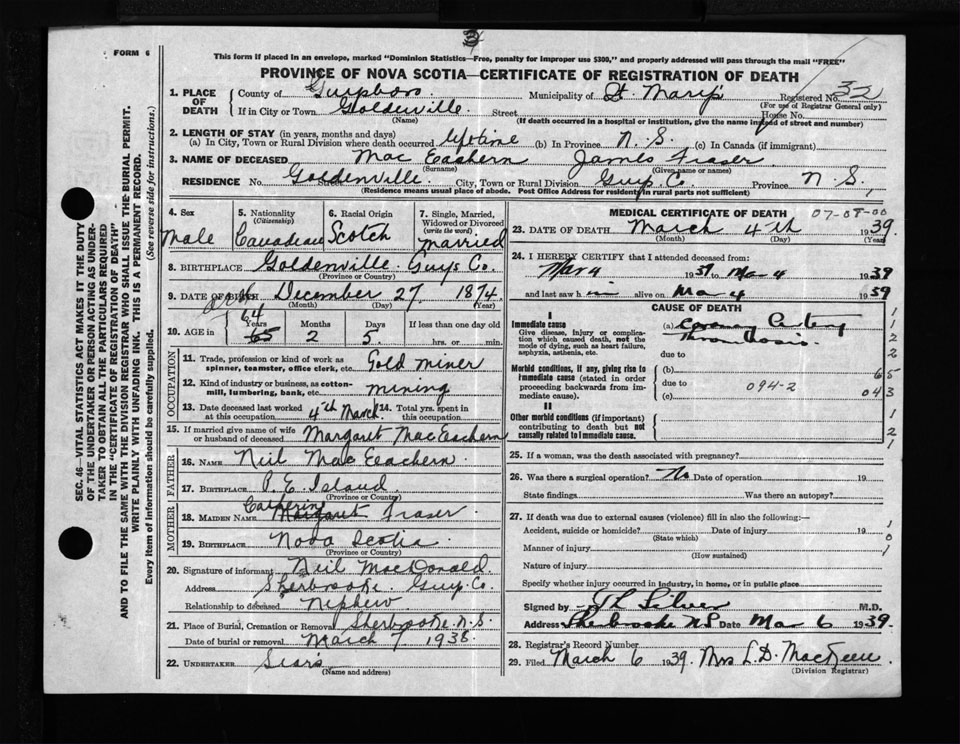 34
FORM 6
This form if placed in an envelope, marked "Dominion Statistics—Free, penalty for improper use $300," and properly addressed will pass through the mail "FREE"
PROVINCE OF NOVA SCOTIA—CERTIFICATE OF REGISTRATION OF DEATH
1. PLACE OF DEATH County of Guysboro Municipality of St. Mary's Registered No. 32
(For use of Registrar General only)
If in City or Town Goldenville Street House No.
(Name) (If death occurred in a hospital or institution, give the name instead of street and number)
2. LENGTH OF STAY (in years, months and days)
(a) In City, Town or Rural Division where death occurred lifetime (b) In Province N. S. (c) In Canada (if immigrant)
3. NAME OF DECEASED Mac Eachern James Fraser
(Surname) (Given name or names)
RESIDENCE No. Goldenville Street City, Town or Rural Division Guys Co. Province N. S.,
(Residence means usual place of abode. Post Office Address for residents in rural parts not sufficient)
4. Sex
Male
5. Nationality
(Citizenship)
Canadian
6. Racial Origin
Scotch
7. Single, Married, Widowed or Divorced
(write the word)
married
8. BIRTHPLACE Goldenville Guys Co.
(Province or County)
9. DATE OF BIRTH December 27 1874
(Month) (Day) (Year)
10. AGE in 64
Years Months Days If less than one day old
65 2 5 hrs. or min.
OCCUPATION
11. Trade, profession or kind of work as
spinner, teamster, office clerk, etc. Gold miner
12. Kind of industry or business, as cotton-
mill, lumbering, bank, etc. mining
13. Date deceased last worked at this occupation 4th March 14. Total yrs. spent in this occupation
15. If married give name of wife
or husband of deceased Margaret MacEachern
FATHER
16. NAME Neil Mac Eachern
17. BIRTHPLACE P. E. Island
(Province or County)
MOTHER
Catherine
18. MAIDEN NAME Margaret Fraser
19. BIRTHPLACE Nova Scotia
(Province or County)
20. Signature of informant Neil MacDonald
Address Sherbrooke Guys. Co.
Relationship to deceased nephew
21. Place of Burial, Cremation or Removal Sherbrooke N.S.
Date of burial or removal March 7 1938
22. UNDERTAKER Sears
(Name and address)
MEDICAL CERTIFICATE OF DEATH 07-08-00
23. DATE OF DEATH March 4th 1939
(Month) (Day) (Year)
24. I HEREBY CERTIFY that I attended deceased from:
Mar 4 1939 to Mar 4 1939
and last saw h im alive on Mar 4 1939
CAUSE OF DEATH
I
Immediate cause (a) Coronary Artery
Give disease, injury or complication which caused death, not the mode of dying, such as heart failure, asphyxia, asthenia, etc.
Thrombosis.
due to
Morbid conditions, if any, giving rise to immediate cause (stated in order proceeding backwards from immediate cause)
(b)
due to 094-2
(c)
II
Other morbid conditions (if important) contributing to death but not causally related to immediate cause.
1
1
2
2
65
043
1
2
1
25. If a woman, was the death associated with pregnancy?
26. Was there a surgical operation? No Date of operation 19
State findings Was there an autopsy?
27. If death was due to external causes (violence) fill in also the following:—
Accident, suicide or homicide? Date of injury 19
(State which)
Manner of injury
(How sustained)
Nature of injury
1
0
1
Specify whether injury occurred in industry, in home, or in public place
Signed by Silver M.D.
Address Sherbrooke NS Date Mar 6 1939.
28. Registrar's Record Number
29. Filed March 6 1939. Mrs L.D. MacKeen
(Division Registrar)
SEC. 46—VITAL STATISTICS ACT MAKES IT THE DUTY
OF THE UNDERTAKER OR PERSON ACTING AS UNDER-
TAKER TO OBTAIN ALL THE PARTICULARS REQUIRED
IN THE "CERTIFICATE OF REGISTRATION OF DEATH"
AND TO FILE THE SAME WITH THE DIVISION REGISTRAR WHO SHALL ISSUE THE BURIAL PERMIT.
WRITE PLAINLY WITH UNFADING INK. THIS IS A PERMANENT RECORD.
Every item of information should be carefully supplied. (See reverse side for instructions.)